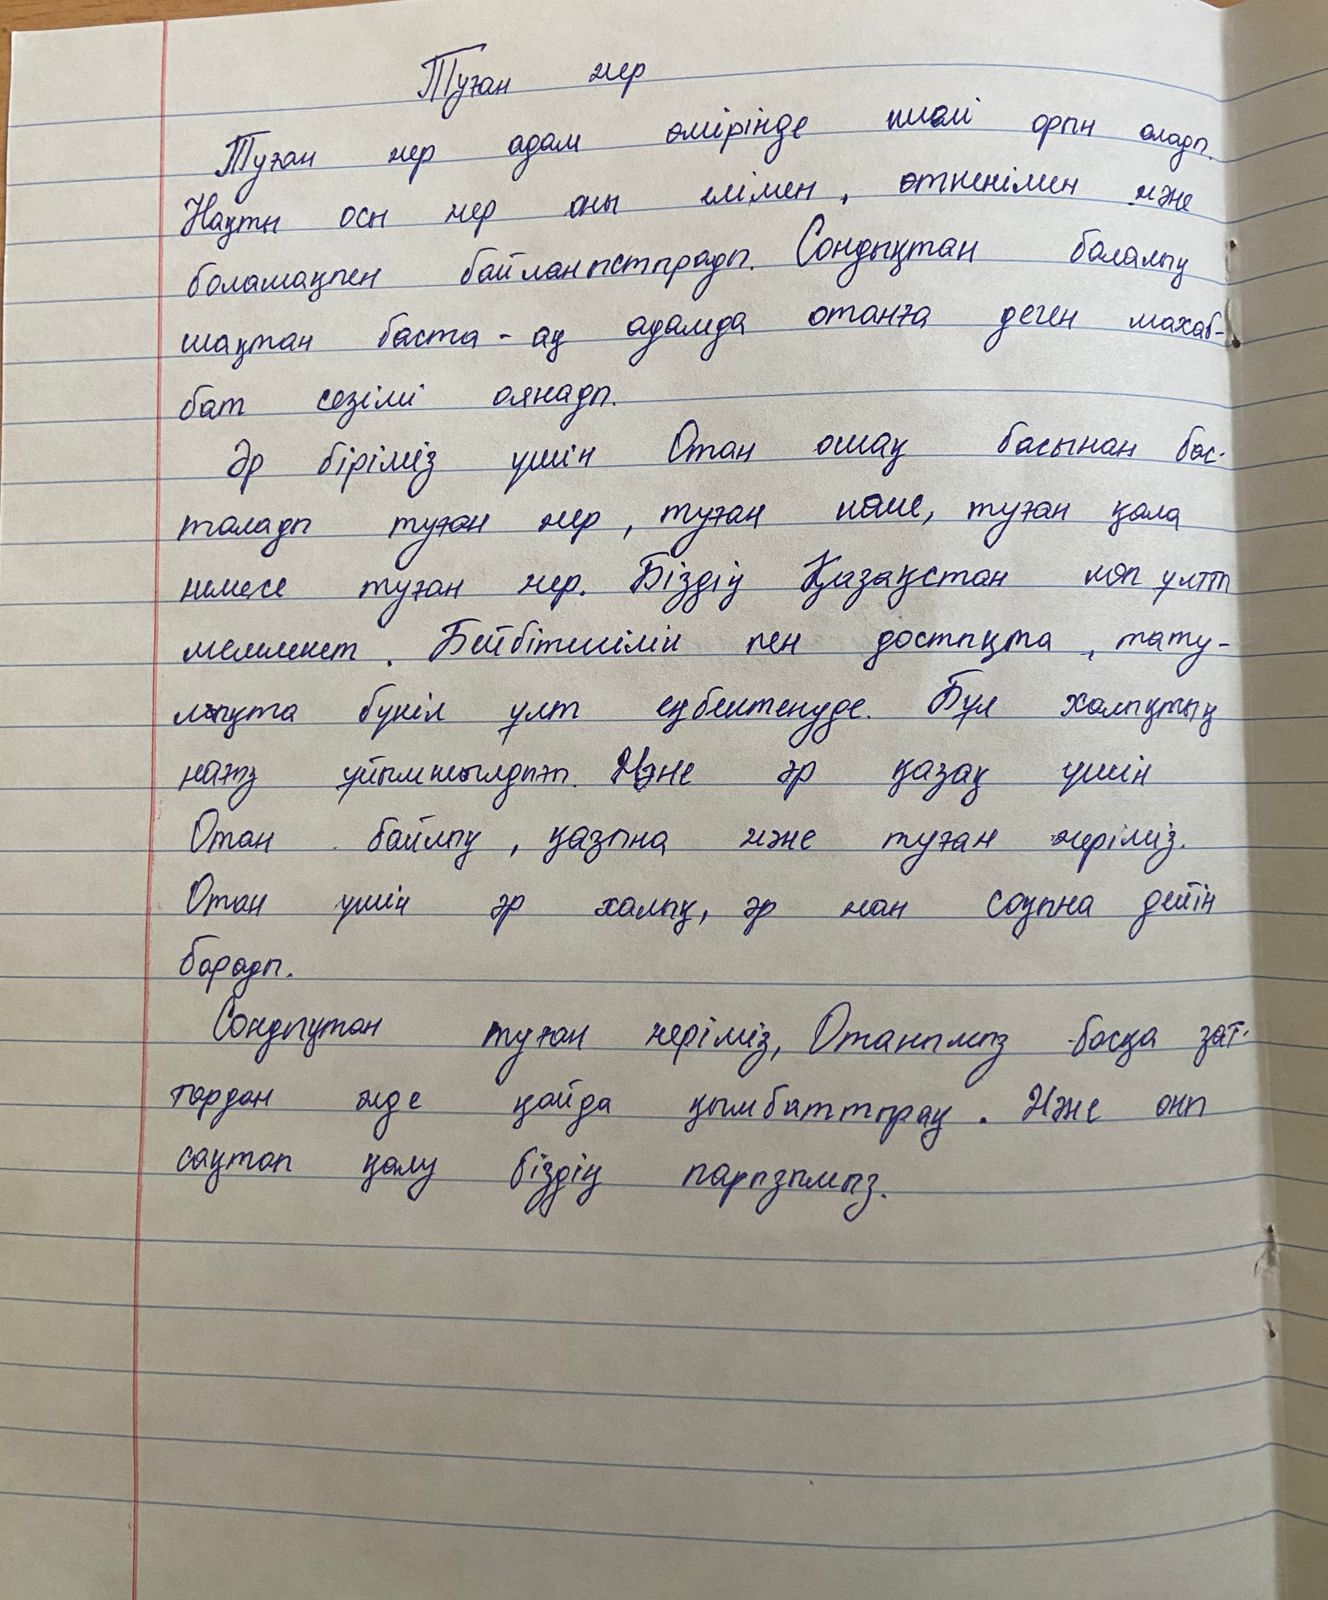 Туған жер
Туған жер адам өмірінде киелі орын алады.
Нақты осы жер оны елімен, өткенімен және
болашақпен байланыстырады. Сондықтан балалық
шақтан баста-ақ адамда отанға деген махаб-
бат сезімі оянады.
Әр біріміз үшін Отан ошақ басынан бас-
талады туған жер, туған көше, туған қала
немесе туған жер. Біздің Қазақстан көп ұлтты
мемлекет. Бейбітшілік пен достықта, тату-
лықта бүкіл ұлт еңбектенуде. Бұл халықтың
нағыз ұйымшылдығы. Және әр қазақ үшін
Отан байлық, қазына және туған жеріміз.
Отан үшін әр халық, әр жан соңына дейін
барады.
Сондықтан туған жеріміз, Отанымыз басқа зат-
тардан әлде қайда қымбаттырақ. Және оны
сақтап қалу біздің парызымыз.